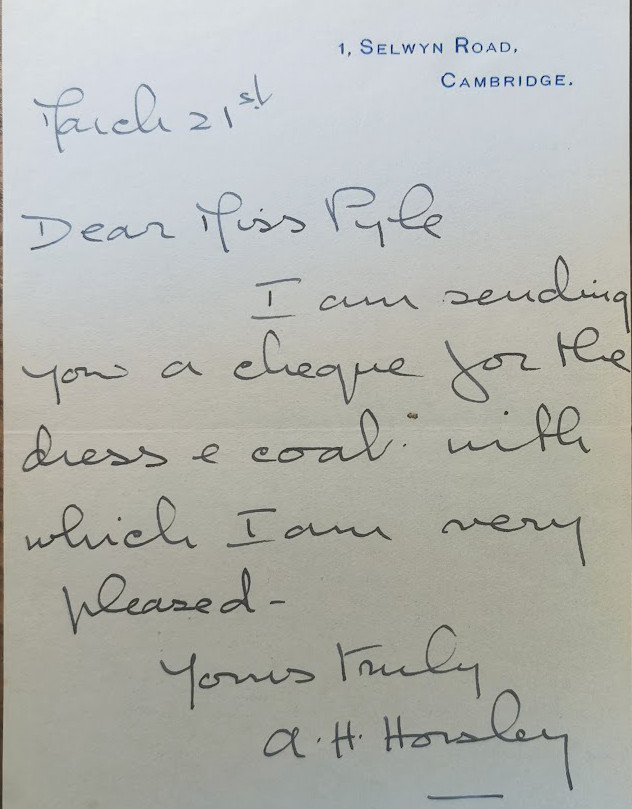 1, SELWYN ROAD,
CAMBRIDGE.
March 21st
Dear Miss Pyle
I am sending
you a cheque for the
dress & coat with
which I am very
pleased-
Yours truly
A. H. Horsley